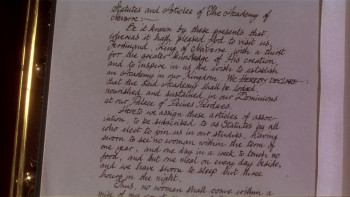 Statutes and Articles of The Academy of
Navarre:—
Be it known by these presents that
whereas it hath pleased God to visit us,
Ferdinand, King of Navarre, with a thirst
for the greater knowledge of His creation,
and to inspire in us the wish to establish
an Academy in our Kingdom, We HEREBY DECLARE
that the said Academy shall be lodged,
nourished and sustained, in our Dominions
at our Palace of
Hereto we assign these articles of assoc-
iation, to be subscribed to as Statutes by all
who elect to join us in our studies, Having
sworn to see no woman within the term of
one year, and one day in a week to touch no
food, and but one meal on every day beside,
and we have sworn to sleep but three
hours in the night.
Thus, no woman shall come within a
mile of our